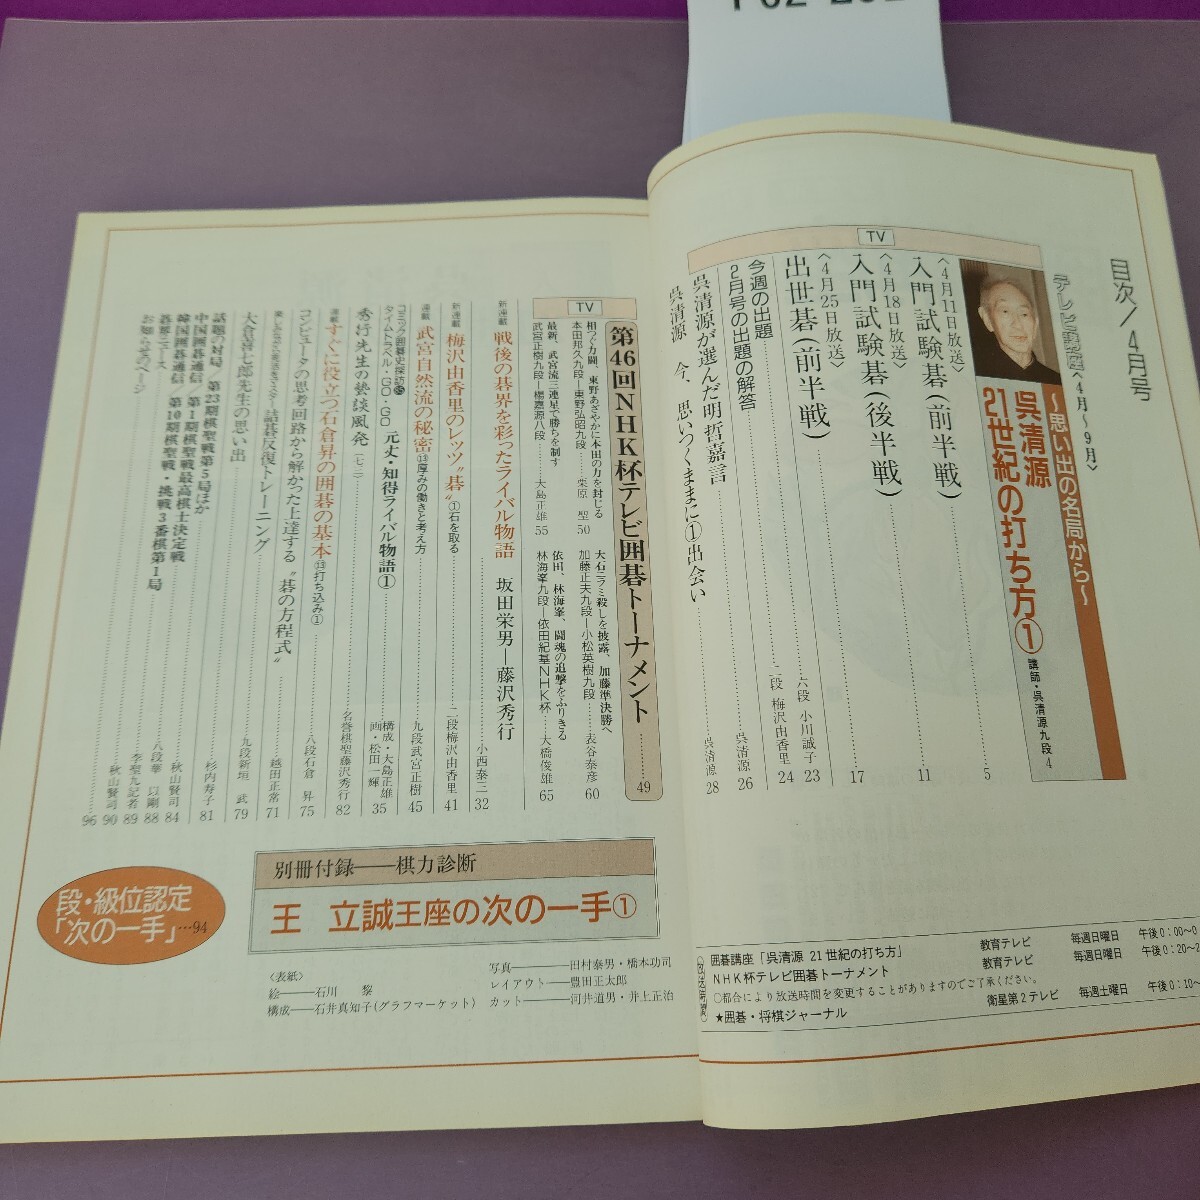 目次/4月号
テレビ講座〈4月~9月〉
~思い出の名局から~
呉清源
21世紀の打ち方①
講師・呉清源九段 4
TV
〈4月11日放送〉
入門試験碁(前半戦)……5
〈4月18日放送〉
入門試験碁(後半戦)……11
〈4月25日放送〉
出世碁(前半戦)……17
今週の出題……六段 小川誠子 23
2月号の出題の解答……二段 梅沢由香里 24
呉清源が選んだ明哲嘉言……呉清源 26
呉清源 今、思いつくままに①出会い……呉清源 28
放送時間
囲碁講座「呉清源 21世紀の打ち方」 教育テレビ 毎週日曜日 午後0:00~0
NHK杯テレビ囲碁トーナメント 教育テレビ 毎週日曜日 午後0:20~2
○都合により放送時間を変更することがありますのでご了承ください。
★囲碁・将棋ジャーナル 衛星第2テレビ 毎週土曜日 午後0:10~
TV
第46回NHK杯テレビ囲碁トーナメント……49
相つぐ力闘、東野あざやかに本田の力を封じる
本田邦久九段―東野弘昭九段……栗原 聖 50
最新、武宮流三連星で勝ちを制す
武宮正樹九段―楊嘉源八段……大島正雄 55
大石ニラミ殺しを披露、加藤準決勝へ
加藤正夫九段―小松英樹九段……表谷泰彦 60
依田、林海峯、闘魂の追撃をふりきる
林海峯九段―依田紀基NHK杯……大橋俊雄 65
新連載 戦後の碁界を彩ったライバル物語 坂田栄男―藤沢秀行……小西泰三 32
新連載 梅沢由香里のレッツ〝碁〟①石を取る……二段梅沢由香里 41
連載 武宮自然流の秘密⑬厚みの働きと考え方……九段武宮正樹 45
コミック囲碁史探訪
タイムトラベル・GO・GO 元丈・知得ライバル物語①……構成・大島正雄 画・松田一輝 35
秀行先生の盤談風発……名誉棋聖藤沢秀行 82
連載 すぐに役立つ石倉昇の囲碁の基本⑬打ち込み①……八段石倉 昇 75
コンピュータの思考回路から解かった上達する〝碁の方程式〟……越田正常 71
詰碁反復トレーニング……九段新垣 武 79
大倉喜七郎先生の思い出……杉内寿子 81
話題の対局/第23期棋聖戦第5局ほか……秋山賢司 84
中国囲碁通信/第1期棋聖戦最高棋士決定戦……八段華 以剛 88
韓国囲碁通信/第10期棋聖戦・挑戦3番棋第1局……李聖九記者 89
碁界ニュース……秋山賢司 90
お知らせのページ……96
別冊付録――棋力診断
王 立誠王座の次の一手①
段・級位認定
「次の一手」…94
〈表紙〉
絵――石川 黎
構成――石井真知子(グラフマーケット)
写真――田村泰男・橋本功司
レイアウト――豊田正太郎
カット――河井道男・井上正治